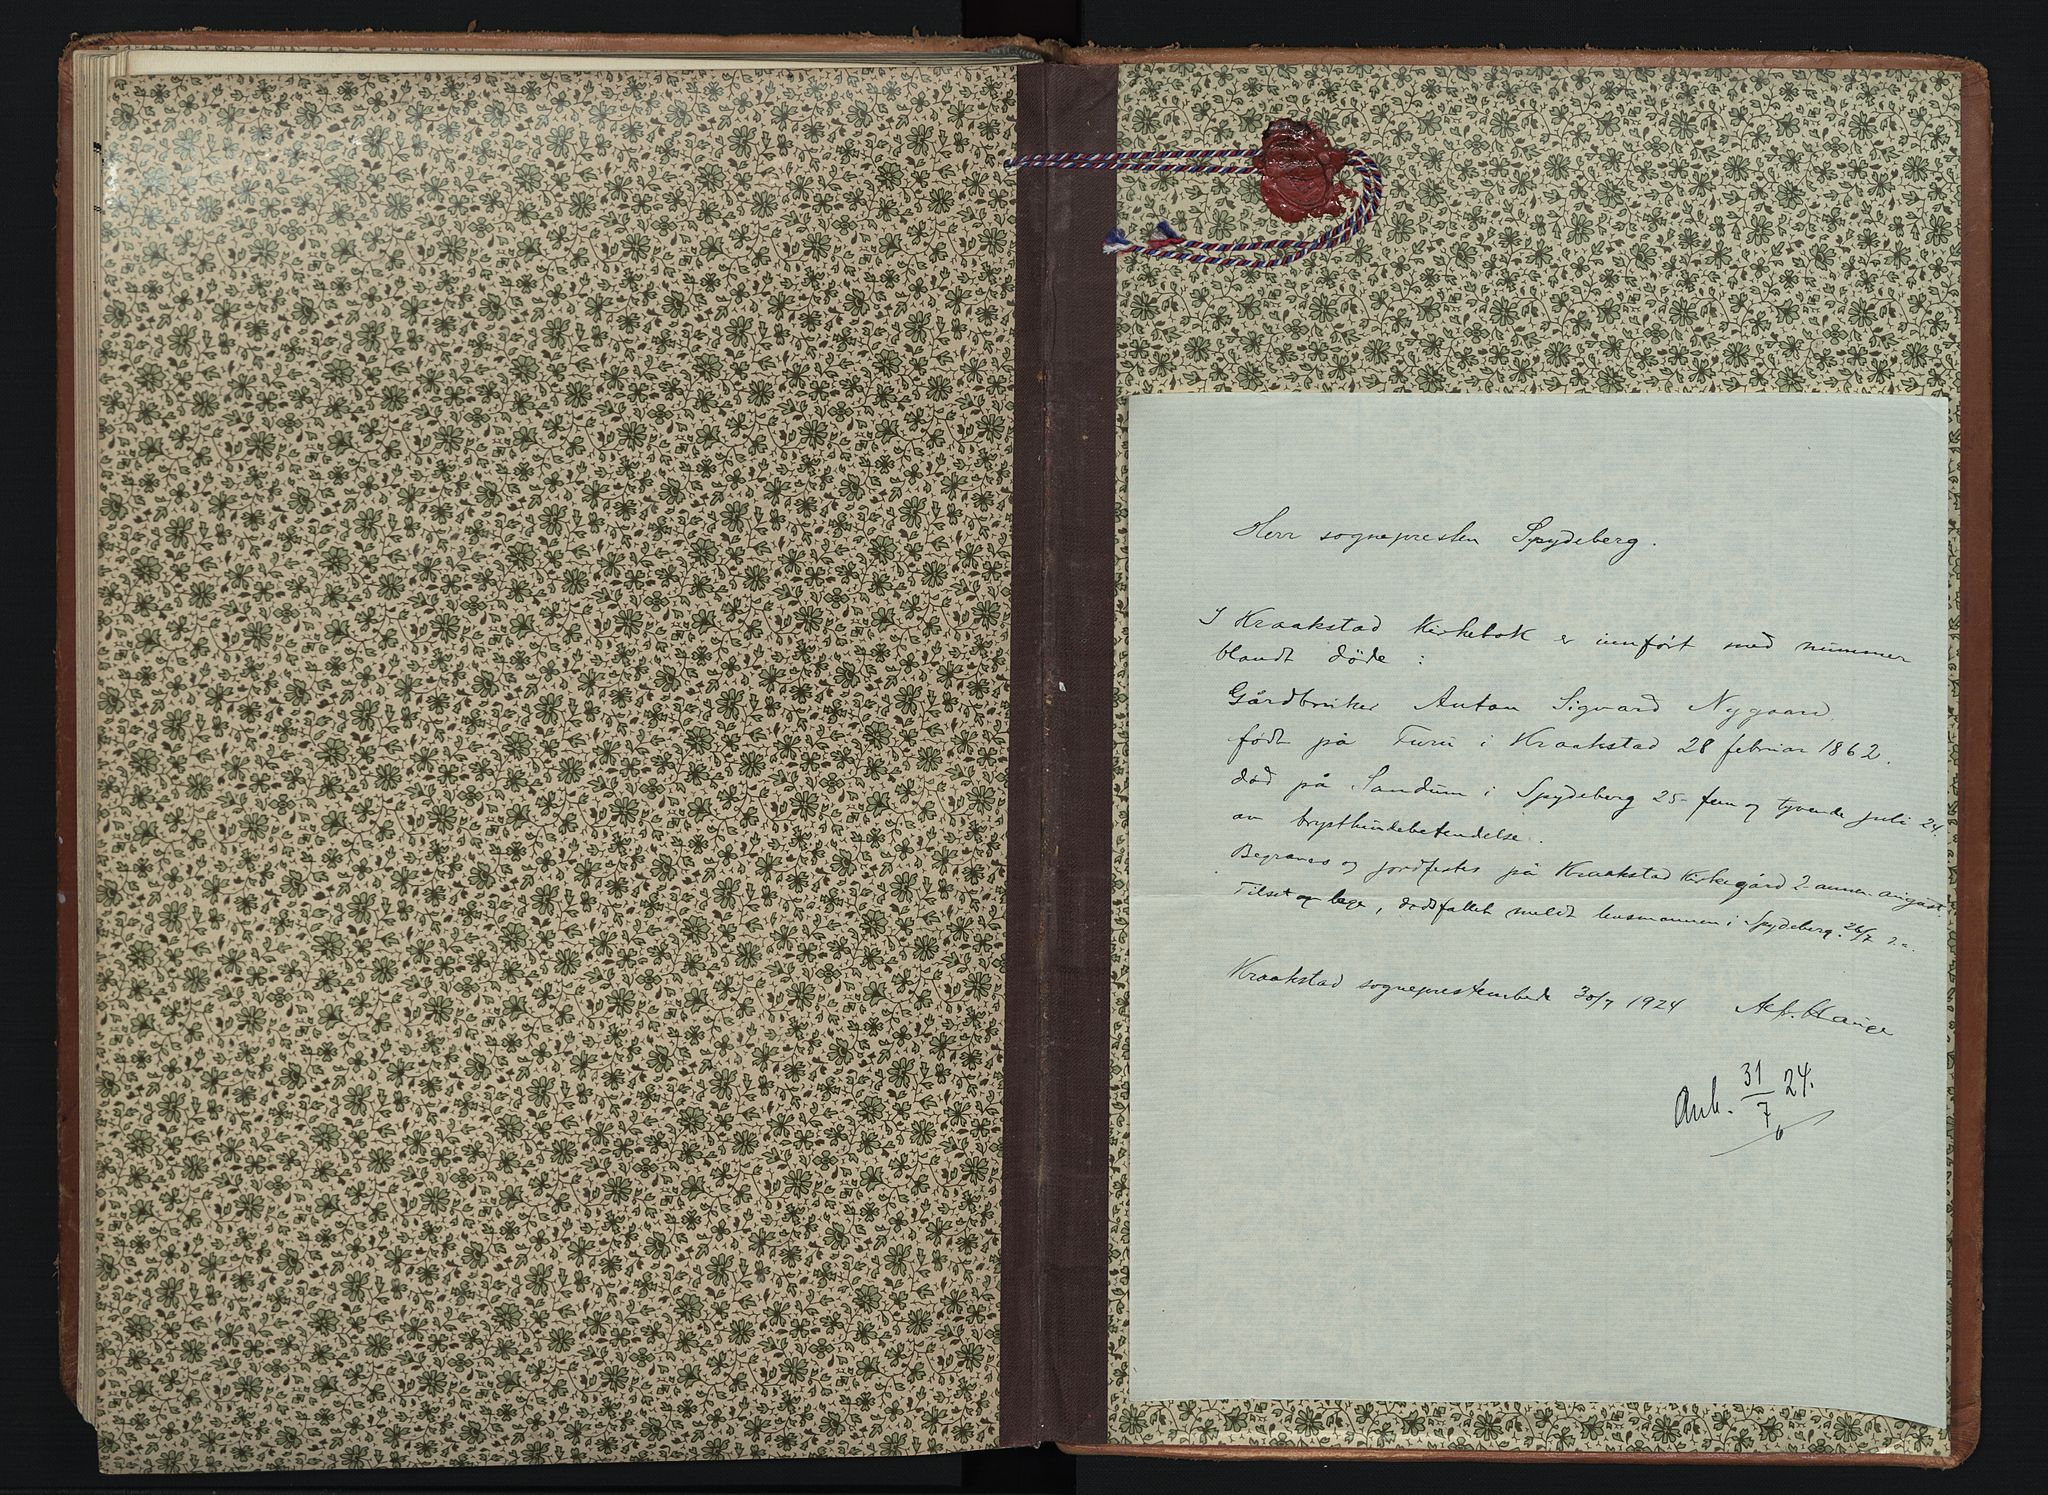 Herr sognepresten Spydeberg.
I Kraakstad kirkebok er innført med nummer
blandt døde :
Gårdbruker Anton Sigvard Nygaard.
født på Furu i Kraakstad 28 februar 1862.
død på Sandum i Spydeberg 25- fem og tyvende juli 24
av brysthindebetendelse.
Begraves og jordfestes på Kraakstad kirkegård 2 annen august.
Tilset og læge, dødsfallet meldt lensmannen i Spydeberg. 26/7
Kraakstad sogneprestembede 30/7 1924 Alf. Hauge
Ank. 31/7 24.